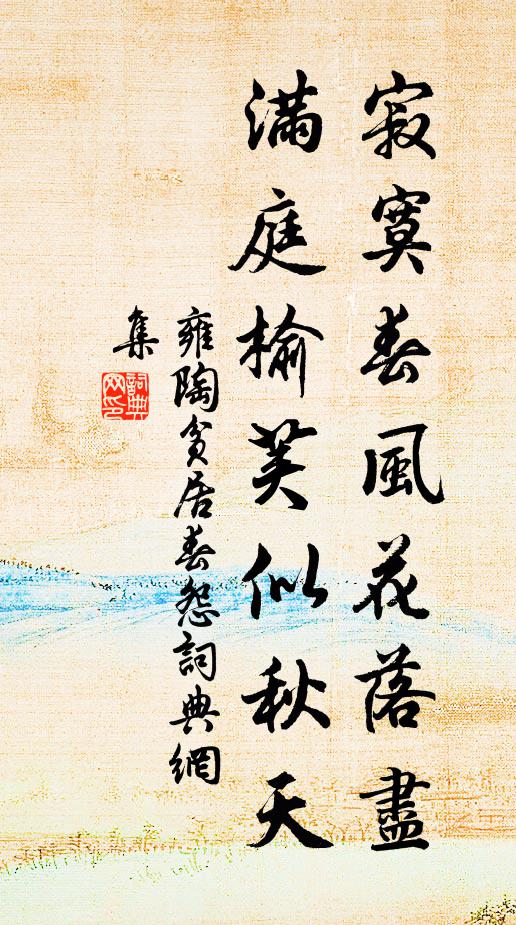 寂寞春風花落盡
滿庭榆荚似秋天
雍陶貧居春怨詞典網
集
詞典
网印